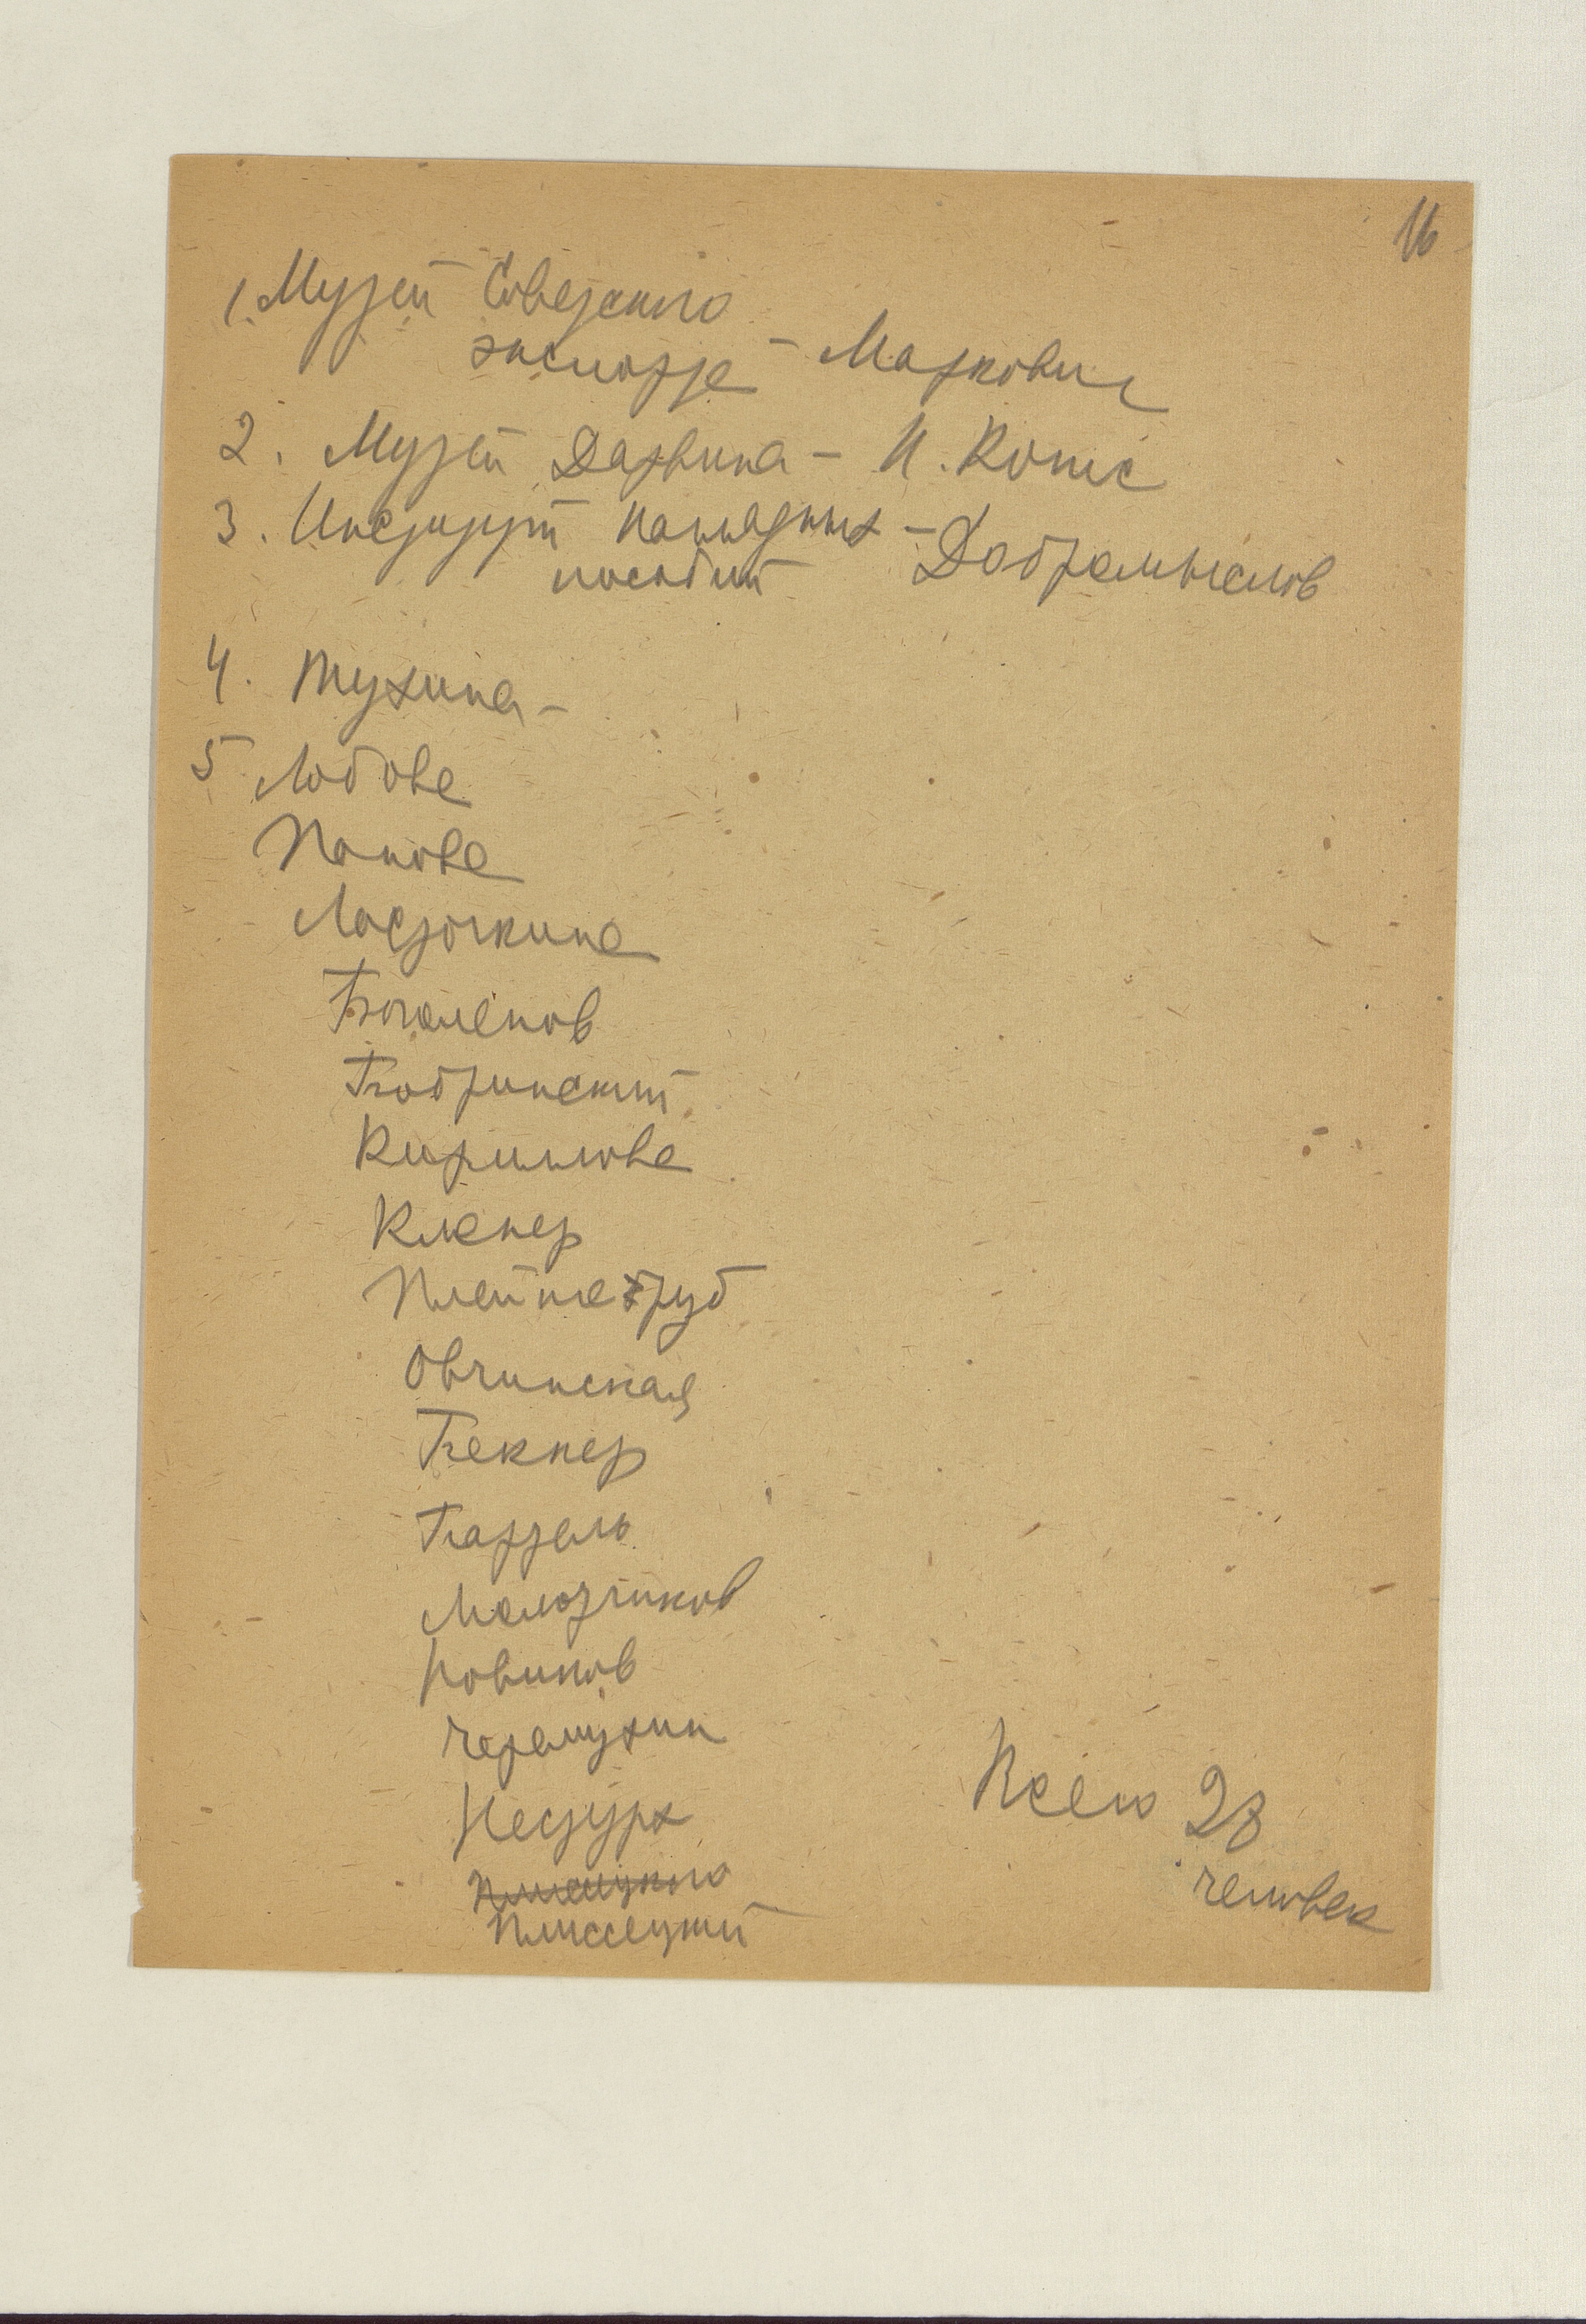 16
1. Музей Советского
экспорта - Маркович
2. Музей Дарвина - И. Котс
3. Институт наглядных -
пособий Добромыслов
4. Тухина -
5 Лобова
Попова
Ласточкина
Боголепов
Бобринский
Кириллова
Клепер
Овчинская
Бекнер
Бартель
Молодчиков
Новиков
Черемухин
Нестурх
Плиссецкий
Всего 28
человек